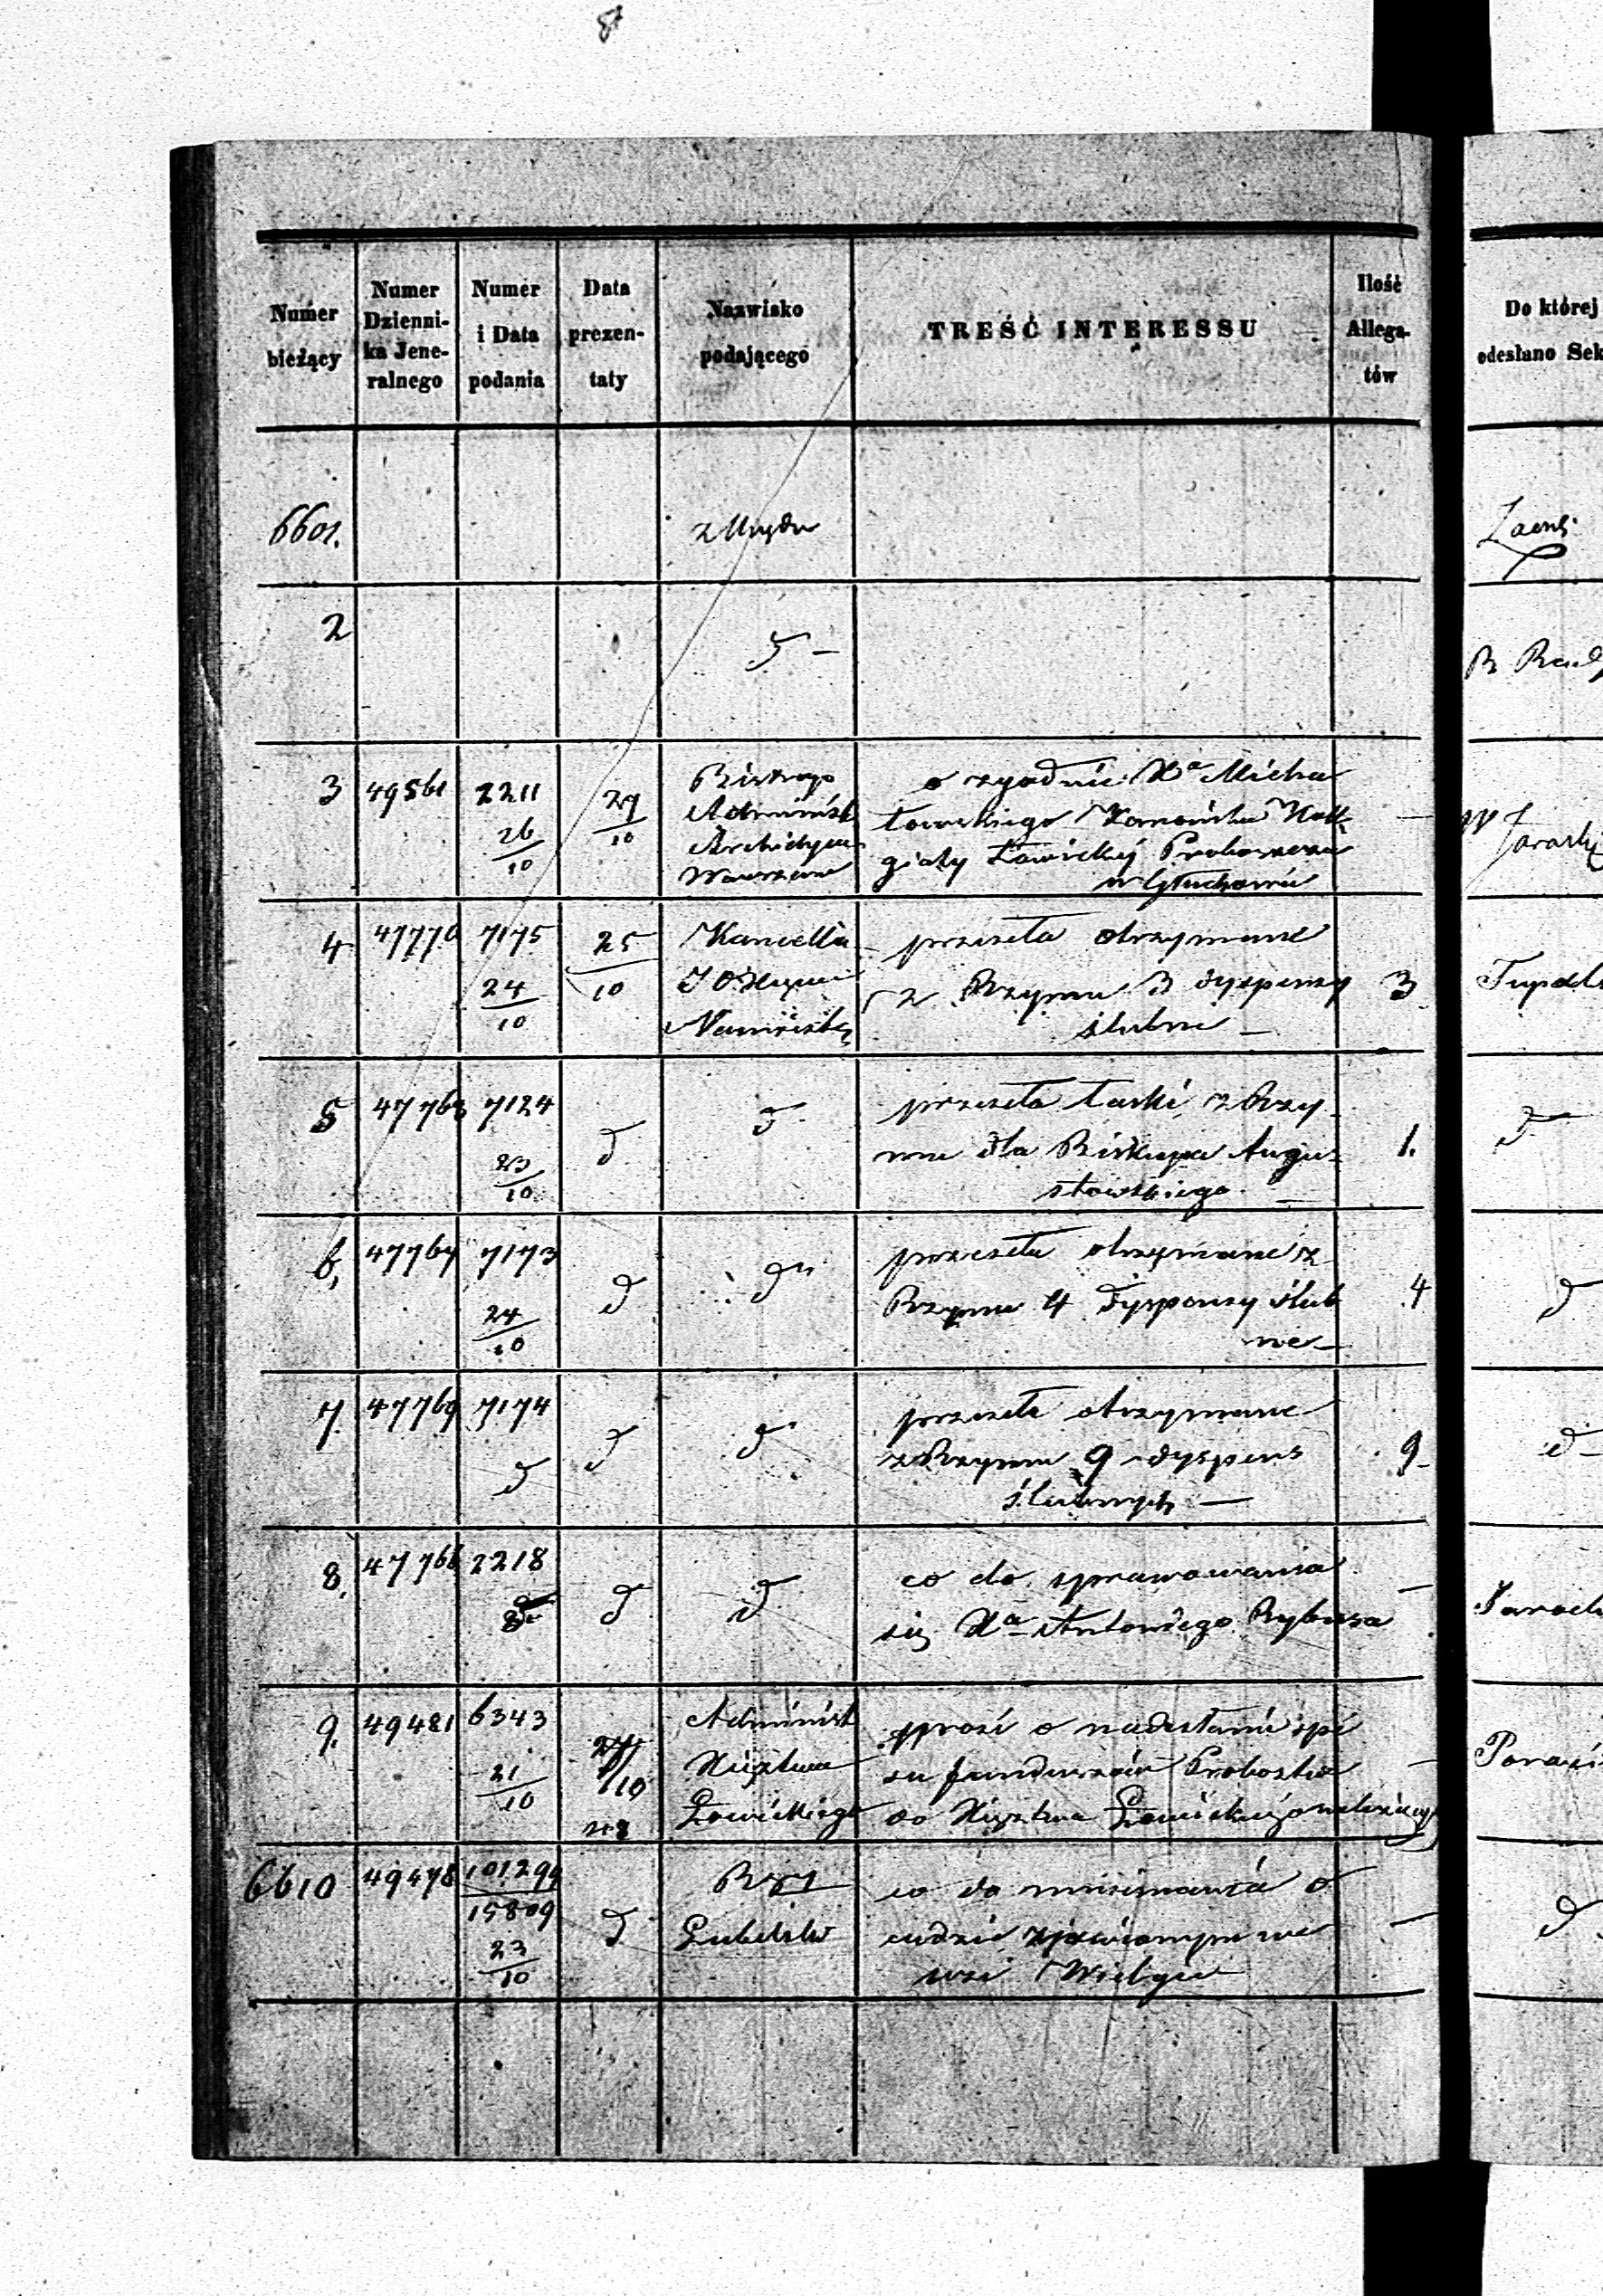 Numer bieżący | Numer Dzienni- ka Jene- ralnego | Numer i Data podania | Data prezen- taty | Nazwisko podającego | TREŚĆ INTERESSU | Ilość Allega- tów | Do której odesłano Sek
6601. | z Urzędu
2 | d –
3 | 49561 | 2211 26/10 | 27/10 | Biskup Administ Archidyec Warszaw | o zgodnie Xa Micha | –
łowskiego Kanonika Koll
giaty Łowickiej Proboszcza
w Głuchowie
4 | 47770 | 7175 24/10 | 25/10 | Kancella J O Xięcia Namiestn | przeseła otrzymane | 3
z Rzymu 3 dyspensy
ślubne –
5 | 47768 | 7124 23/10 | d | d | przeseła łaski z Rzy- | 1. | d
mu dla Biskupa Augu-
stowskiego. –
6, | 47767 | 7173 24/10 | d | do | przeseła otrzymane z | 4 | d
Rzymu 4 dyspensy ślub
ne –
7. | 47769 | 7174 d | d | d | przeseła otrzymane | 9 | d –
z Rzymu 9 dyspens
ślubnych –
8. | 47766 | 2218 | d | d | co do sprawowania | –
się Xa Antoniego Rybusa
9. | 49481 | 6343 21/10 | 28 | Administ Xięztwa Łowickiego | prosi o nadesłanie spi | –
su funduszów Probostw
do Xięztwa Łowickiego należących
6610 | 49478 | 101299/15809 23/10 | d | Rząd Lubelski | co do mniemania o | – | d
cudzie zjawionym we
wsi